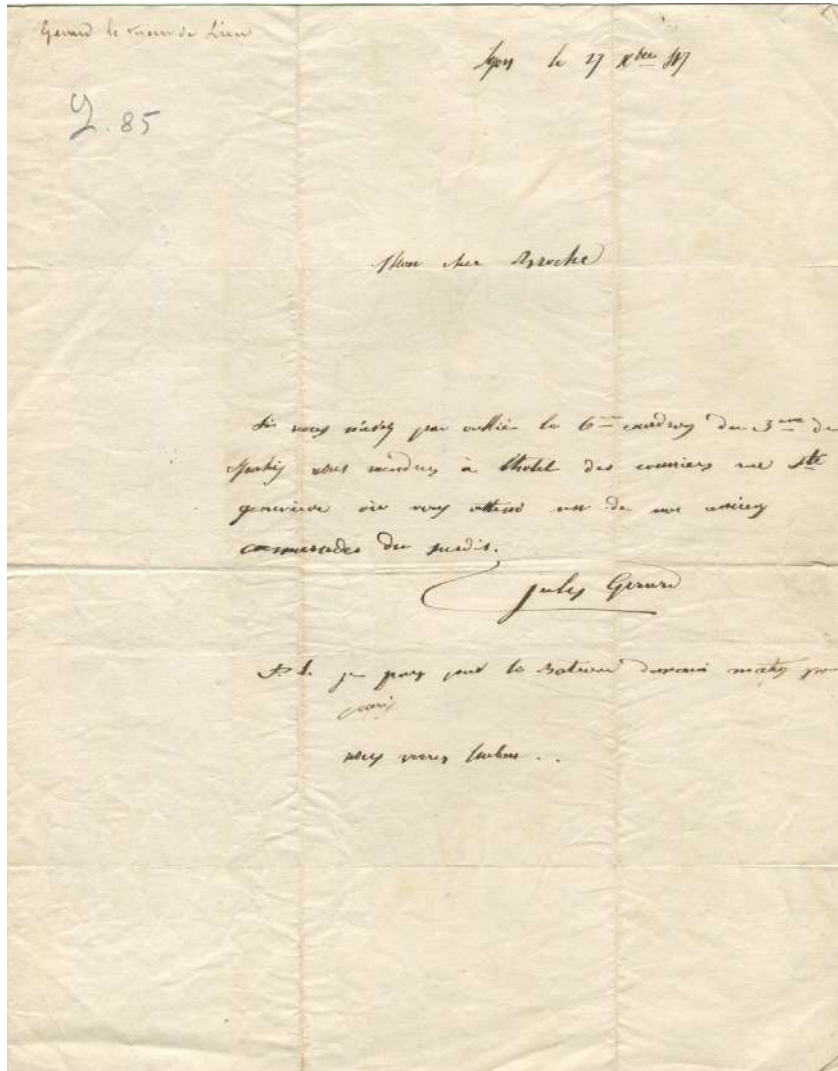 Gerard le tueur de Lion
2.85
Lyon le 27 Xbre 47
Mon cher
Si vous n'avez pas oublié le 6me du 3me de
Spahis vous à l'hotel des courriers rue Ste
genevieve ou vous attend un de vos anciens
camarades du susdit.
Jules Gerard
P.S. je pars par le Bateau demain matin pour
paris
vous verrez